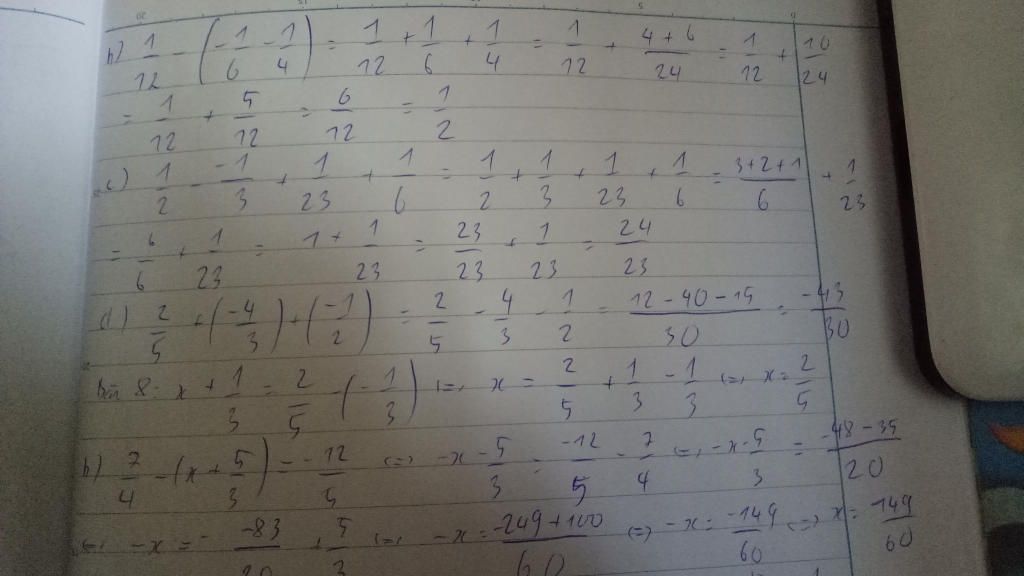 b) 1/12 - (-1/6 - 1/4) = 1/12 + 1/6 + 1/4 = 1/12 + (4+6)/24 = 1/12 + 10/24
= 1/12 + 5/12 = 6/12 = 1/2
c) 1/2 - -1/3 + 1/23 + 1/6 = 1/2 + 1/3 + 1/23 + 1/6 = (3+2+1)/6 + 1/23
= 6/6 + 1/23 = 1 + 1/23 = 23/23 + 1/23 = 24/23
d) 2/5 + (-4/3) + (-1/2) = 2/5 - 4/3 - 1/2 = (12-40-15)/30 = -43/30
Bài 8: x + 1/3 = 2/5 - (-1/3) <=> x = 2/5 + 1/3 - 1/3 <=> x = 2/5
b) 7/4 - (x + 5/3) = -12/5 <=> -x - 5/3 = -12/5 - 7/4 <=> -x - 5/3 = (-48-35)/20
<=> -x = -83/20 + 5/3 <=> -x = (-249+100)/60 <=> -x = -149/60 <=> x = 149/60